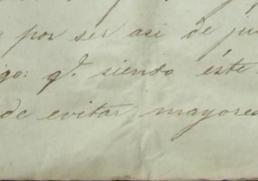 por ser asi de ju
go: q. siendo éste
de evitar mayores